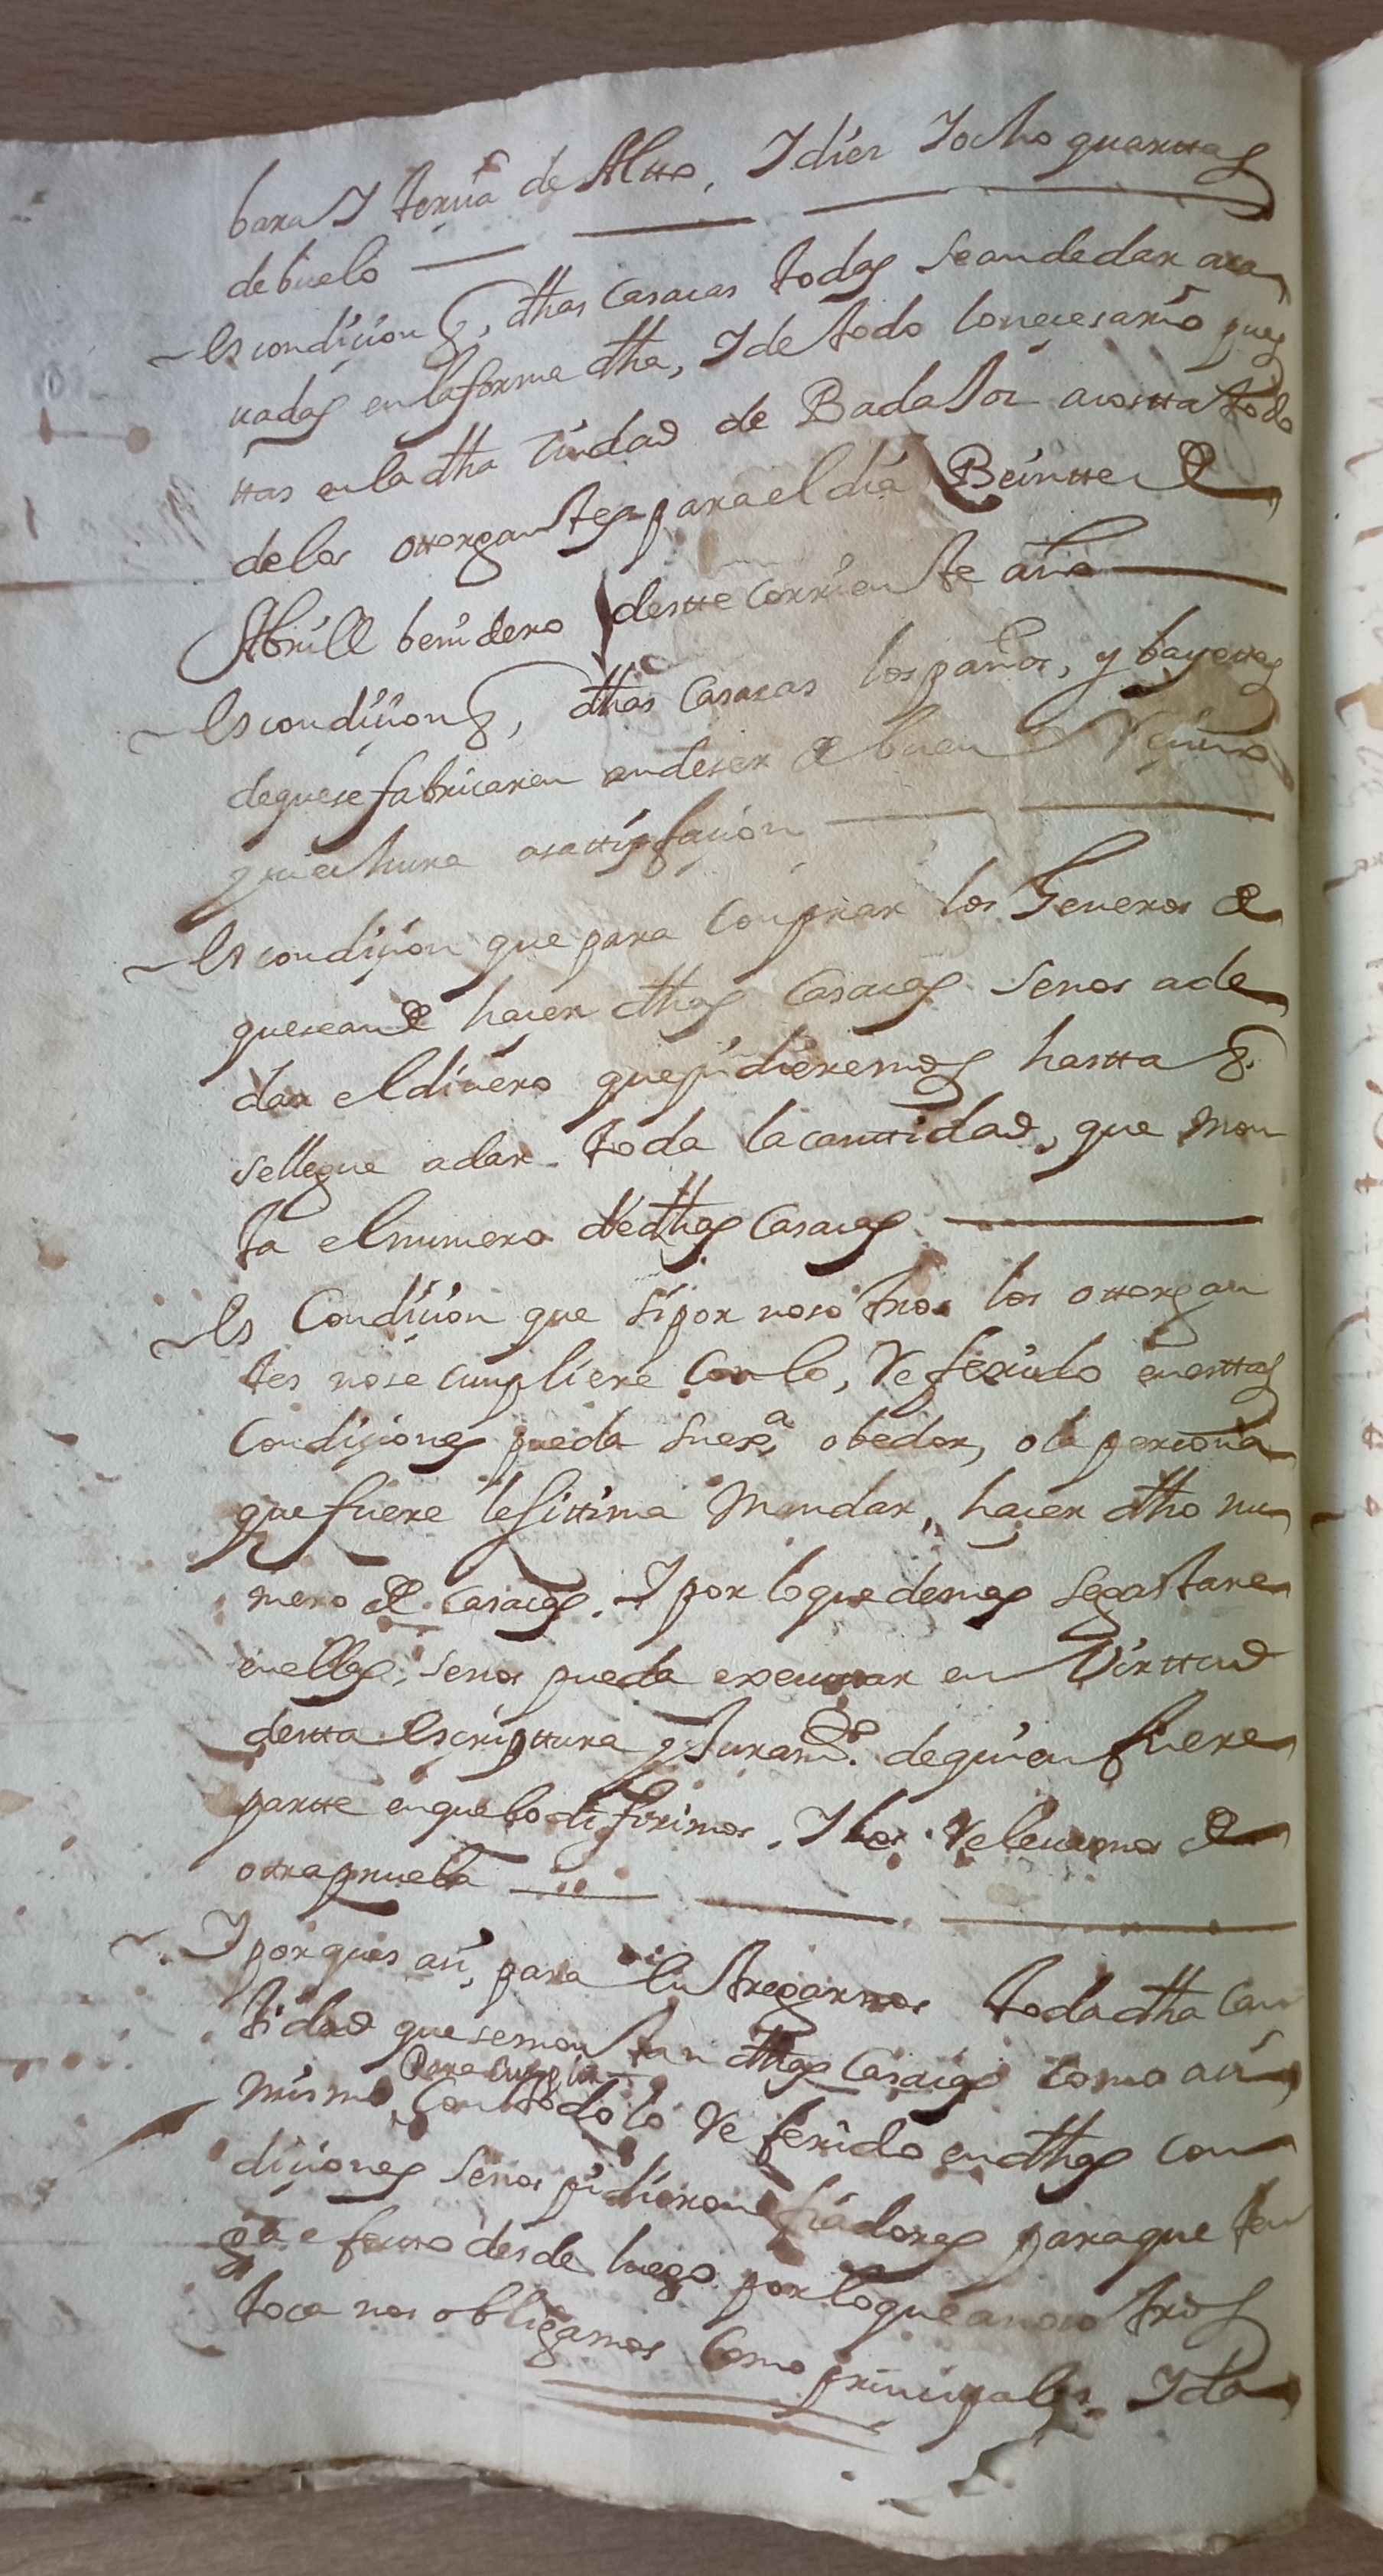 bara Y terzia de Altto, Y diez Y ocho quarttas
de buelo
Es condizion q, dhas Casacas todas se an de dar aca
uadas en la forma dha, Y de todo lo nezesario pues
ttas en la dha ziudad de Badajoz a costta todo
de los ottorgantes para el dia Beintte de
Abrill benidero destte corriente año
Es condizion q, dhas Casacas los paños, y bayettas
de que se fabricaren an de ser de buen
a sattisfazion
Es condizion que para conprar los Generos de
que se an de hazer dhas Casacas se nos a de
dar el dinero que pidieremos hastta q
se llegue a dar toda la canttidad, que mon
ta el numero de dhas Casacas
Es Condizion que si por nosotros los ottorgan
tes no se cunpliere con lo, Referido en esttas
Condiziones pueda su exa, o beedor, o la persona
que fuere lesittima Mandar, hazer dho nu
mero de Casacas. Y por lo que de mas se gastare
en ellas, se nos pueda executtar en Virttud
destta Escripttura y Juramto. de quien fuere
partte en que lo difirimos. Y los Relevamos de
ottra prueba
Y porque es asi, para Entregarnos toda dha Can
tidad que se montan dhas Casacas como asi
mismo Para cunplir con todo lo Referido en dhas con
diziones se nos pidieron fiadores para que ten
ga efectto desde luego por lo que a nosotros
toca nos obligamos como prinzipales. Y da